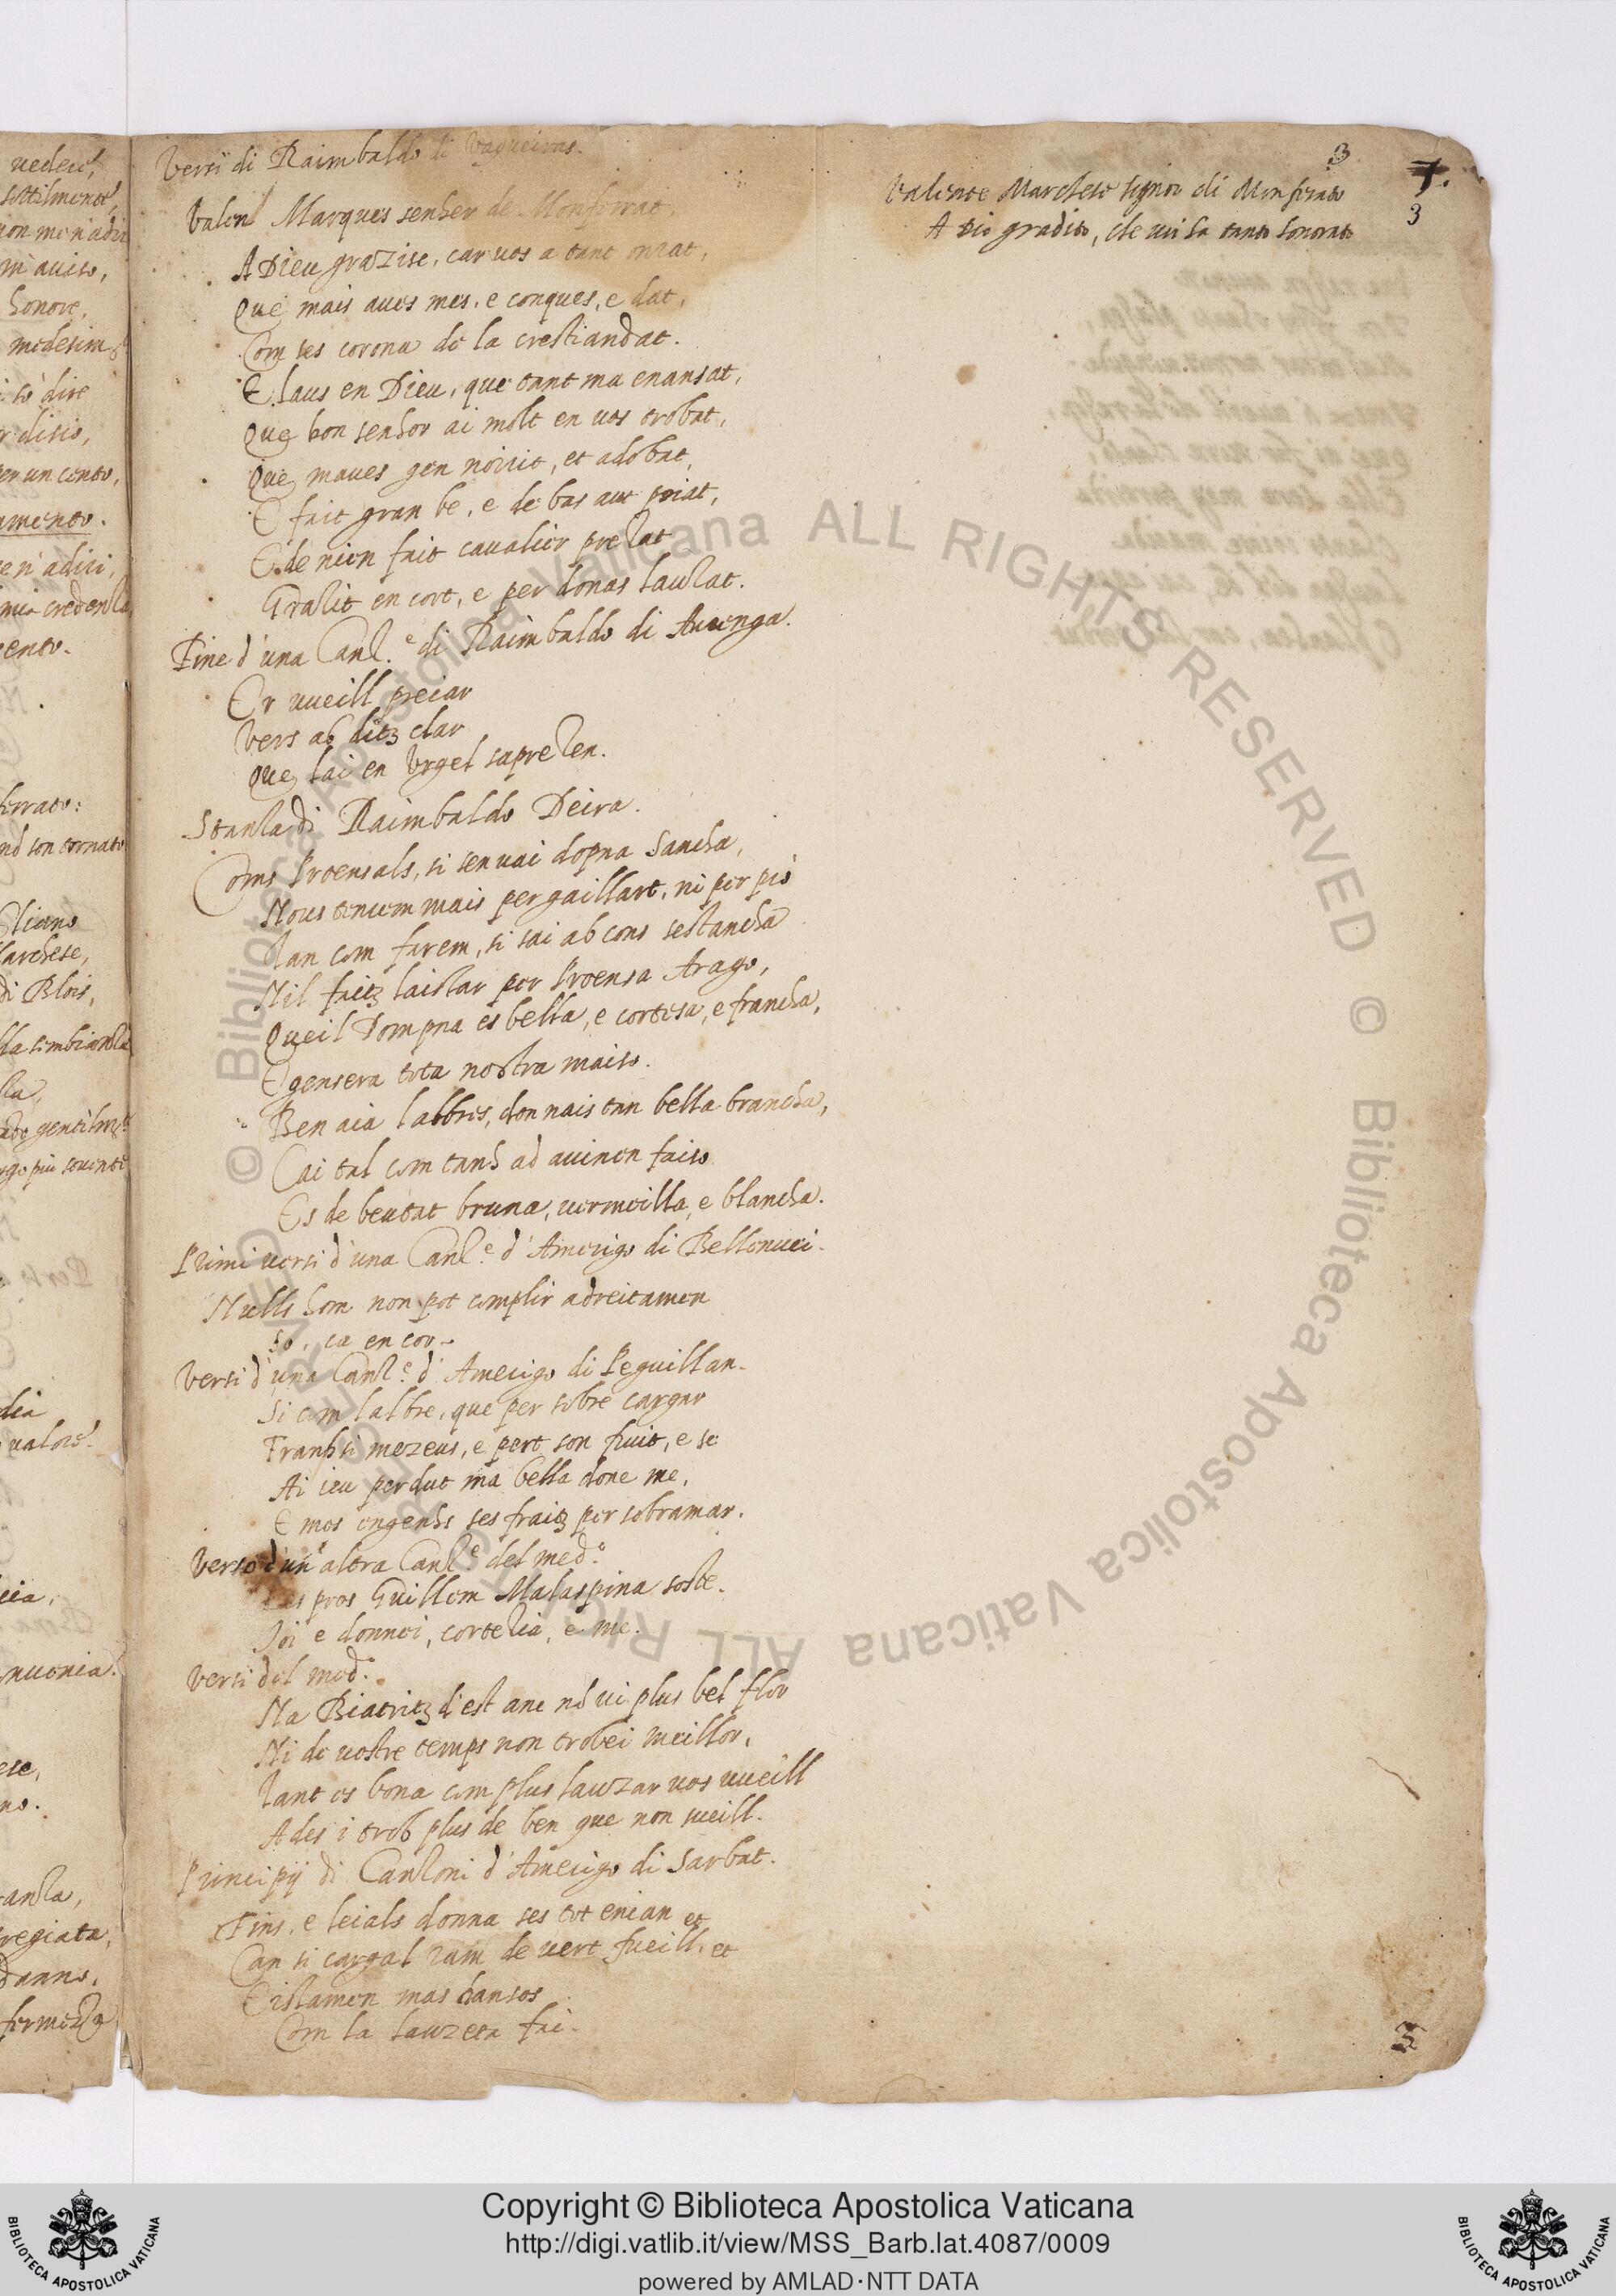 Versi di Raimbaldo di Vaqueiras.
Valent Marques senher de Monferrat,
A Dieu grazisc, car uos a tant onrat,
Que mais aues mes, e conques, e dat,
Com ses corona de la crestiandat.
E laus en Dieu, que tant ma enansat,
Que bon senhor ai molt en uos trobat,
Que maues gen noirit, et adobat,
E fait gran be, e de bas aut poiat,
E de nien fait caualier prezat
Grazit en cort, e per donas lauzat.
Fine d'una Canz.e di Raimbaldo di Aurenga.
Er uueill preiar
Vers ab ditz clar
Que lai en Vrgel saprezen.
Stanza di Raimbaldo Deira.
Coms Proensals, si sen uai dopna Sancha,
Nous tenrem mais per gaillart, ni per pro
Tan com farem, si sai ab cons sestancha
Nil faitz laissar per Proensa Arago,
Queil Dompna es bella, e cortesa, e francha,
E gensera tota nostra maiso.
Ben aia labbres, don nais tan bella brancha,
Cai tal com tanh ad auinen faiso
Es de beutat bruna, uermeilla, e blancha.
Primi uersi d'una Canz.e d'Amerigo di Bellonuei.
Nulls hom non pot complir adreitamen
So, ca en cor.
Versi d'una Canz.e d'Amerigo di Peguillan.
Si com lalbre, que per sobre cargar
Franh si mezeus, e pert son fruit, e se
Ai ieu perdut ma bella done me,
E mos engenhs ses fraitz per sobramar.
Verso d'un'altra Canz.e del med.o
pros Guillem Malaspina soste.
Joi e donnei, cortezia, e me.
Versi del med.o
Na Biatritz d'est anc no ui plus bel flor
Ni de uostre temps non trobei meillor,
Tant es bona com plus lauzar uos uueill
Ades i trob plus de ben que non sueill.
Principij di Canzoni d'Amerigo di Sarbat.
Fins, e leials donna ses tot enian et
Can si cargal ram de uert fueill. et
mas chansos
Com la lauzeta fai.
3
7.
3
Valente Marchese signor di Monferrato
A Dio gradito, che ui ha tanto honorato
3
© Biblioteca Apostolica Vaticana ALL RIGHTS RESERVED © Biblioteca Apostolica Vaticana ALL RIGHTS RESERVED
Copyright © Biblioteca Apostolica Vaticana
http://digi.vatlib.it/view/MSS_Barb.lat.4087/0009
powered by AMLAD·NTT DATA
BIBLIOTECA APOSTOLICA VATICANA
BIBLIOTECA APOSTOLICA VATICANA